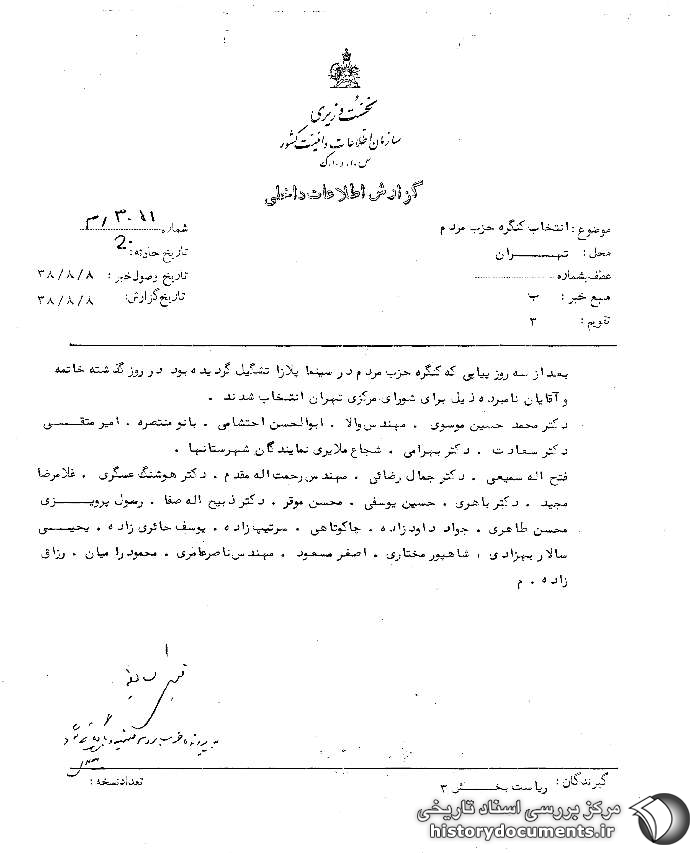 نخست وزیری
سازمان اطلاعات و امنیت کشور
س.ا.و.ا.ک
گزارش اطلاعات داخلی
موضوع : انتخاب کنگره حزب مردم
شماره
محل : تهـــران
تاریخ حادثه :
عطف بشماره
تاریخ وصول خبر : ۳۸/۸/۸
منبع خبر : ب
تاریخ گزارش : ۳۸/۸/۸
تقویم : ۳
بعد از سه روز پیاپی که کنگره حزب مردم در سینما پلازا تشکیل گردیده بود در روز گذشته خاتمه
و آقایان نامبرده ذیل برای شورای مرکزی تهران انتخاب شدند .
دکتر محمد حسین موسوی . مهندس والا . ابوالحسن احتشامی . بانو منتصره . امیر متقـــی
دکتر سعادت . دکتر بهرامی . شجاع ملایری نمایندگان شهرستانها .
فتح اله سمیعی . دکتر جمال رضائی . مهندس رحمت اله مقدم . دکتر هوشنگ عسگری . غلامرضا
مجید . دکتر باهری . حسین یوسفی . محسن موقر . دکتر ذبیح اله صفا . رسول پرویـــزی
محسن طاهری . جواد داودزاده . جاکوتاهی . سرتیپ زاده . یوسف حائری زاده . یحیـــی
سالار بهزادی ، شاهپور مختاری . اصغر مسعود . مهندس ناصر عامری . محمود رامیان . رزاقی
زاده . م
گیرندگان : ریاست بخــــش ۳
تعداد نسخه :
مرکز بررسی اسناد تاریخی
historydocuments.ir